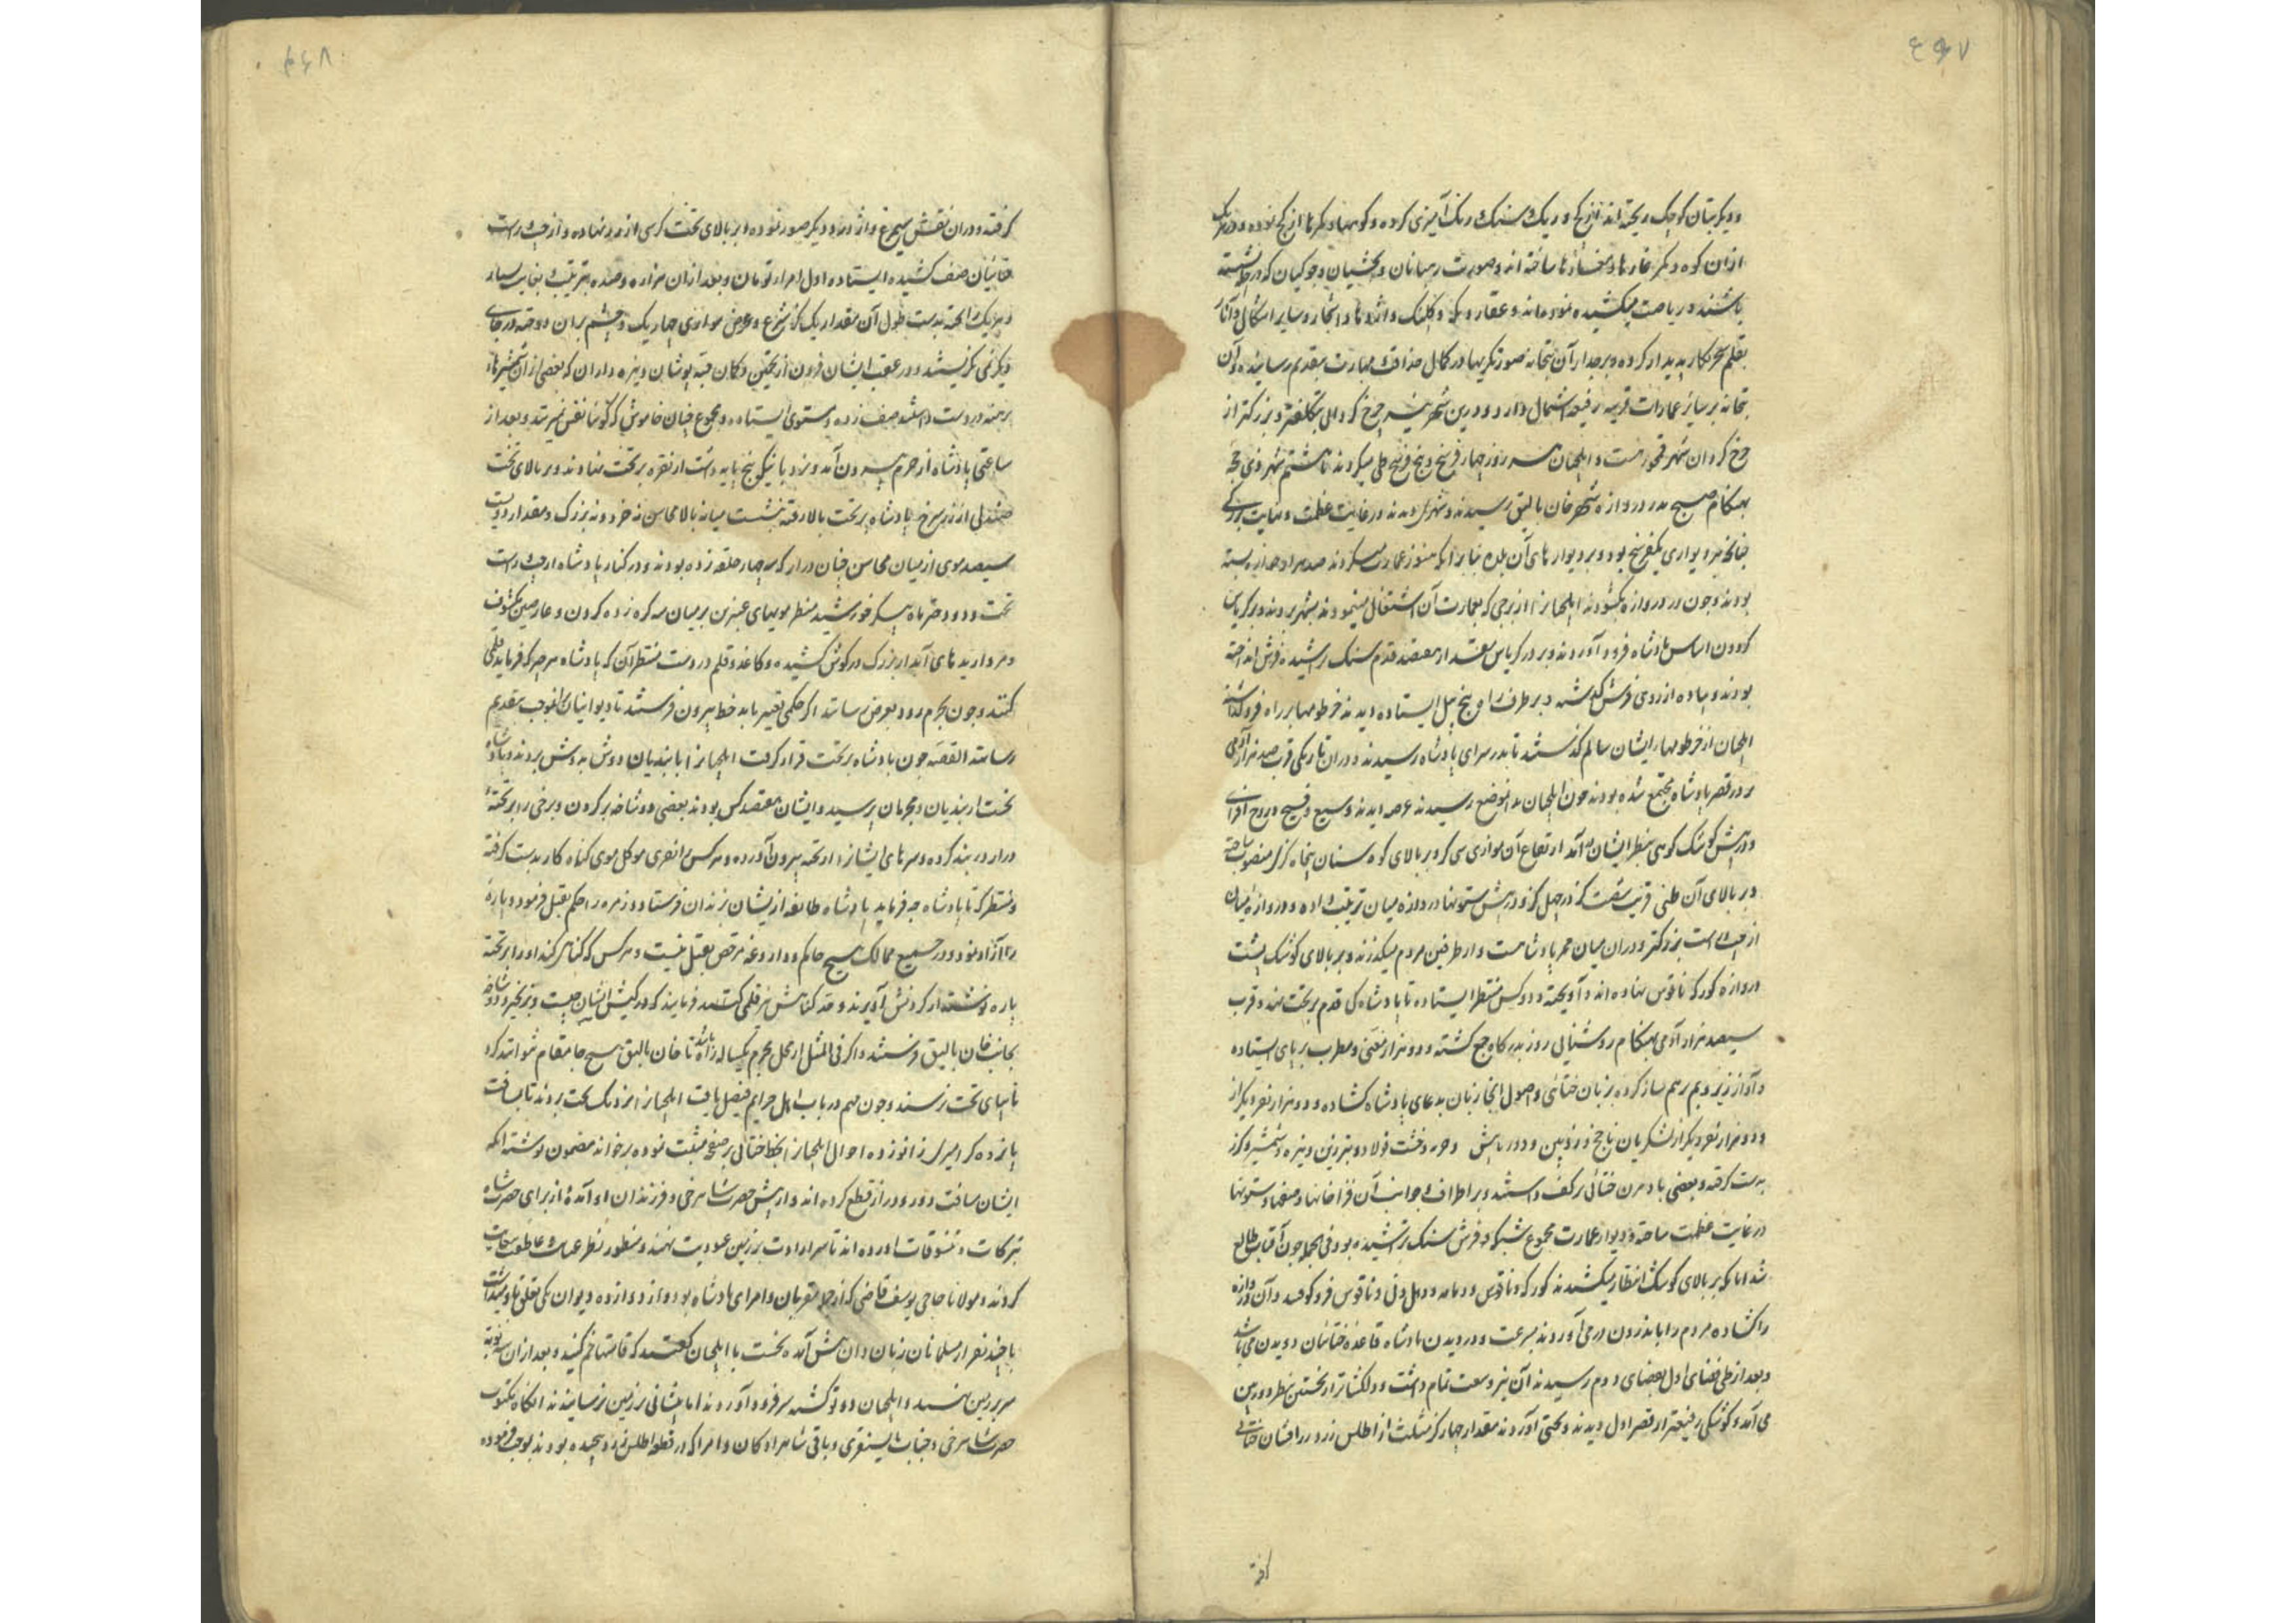 ۴۶۷
و دیگر بتان کوچک ریخته اند از کج و ریک و سنک رنک آمیزی کرده و کوهها و کمرها از کج نموده و در هر یک
ازان کوه و کمر غارها و مغازها ساخته اند و صورت رهبانان و بخشیان و جوکیان که در جا نشسته
باشند و ریاضت میکشیده نموده اند و عقار و بکه و کلنک و اژدها و اشجار و سایر اشکال و آثار
بقلم سحر کار پدیدار کرده و بر جدار آن بتخانه صورتکریها در کمال حذاقت و مهارت بتقدیم رسانیده و آن
بتخانه بر سایر عمارات قریبه رفیعه اشتمال دارد و درین شهر نیز چرخ کردانی بتکلفتر و بزرکتر از
چرخ کردان شهر قمجو هست و ایلچیان هر روز چهار فرسخ و پنج فرسخ طی میکردند تا هشتم شهر ذی حجه
بهنکام صبح بدر دروازه شهر خان بالیق رسیدند و شهری دیدند در غایت عظمت و نهایت بزرکی
چنانکه هر دیواری یکفرسخ بود و بر دیوارهای آن بلده بنا بر آنکه هنوز عمارت میکردند صد هزار چوازه بسته
بودند و چون در دروازه نکشودند ایلچیانرا از برجی که بعمارت آن اشتغال مینمودند بشهر بردند و بر کریاس
کردون اساس پادشاه فرود آوردند و بر در کریاس مقدار هفتصد قدم سنک تراشیده فرش انداخته
بودند و پیاده از روی فرش کذشته و بر طرف راه پنج پیل ایستاده دیدند خرطومها بر راه فروکذاشته
ایلچیان از خرطومها ایشان سالم کذشتند تا بدر سرای پادشاه رسیدند و دران تاریکی قرب صد هزار آدمی
بر در قصر پادشاه مجتمع شده بودند چون ایلچیان بدانموضع رسیدند عرصه دیدند وسیع و فسیح و روح افزای
و در پیش کوشک کوهی بنظر ایشان درآمد ارتفاع آن موازی سی کز و بر بالای کوه ستونان پنجاه کزی منصوب ساخته
و بر بالای آن طنبی قریب شصت کز در چهل کز و در پیش ستونها دروازه میان ترتیب داده و دروازه میان
از چپ و راست بزرکتر و دران میان ممر پادشاست و از طرفین مردم میکذرند و بر بالای کوشک پشت
دروازه کورکه ناقوس نهاده اند و آویخته و دو کس منتظر ایستاده تا پادشاه کی قدم بر تخت نهد و قرب
سیصد هزار آدمی بهنکام روشنائی روز بدرکاه جمع کشته و دو هزار مغنی و مطرب بر پای ایستاده
و آواز زیر و بم بر هم ساز کرده بزبان ختائی و اصول انجا زبان بدعای پادشاه کشاده و دو هزار نفر دیکر از
و دو هزار نفر دیکر از لشکریان ناچخ و زوبین و دورباش و حربه و خشت فولاد و تبرزین و نیزه و شمشیر و کرز
بدست کرفته و بعضی بادبیزن ختائی بر کف داشتند و بر اطراف و جوانب آن فزا خانها و صفها و ستونها
در غایت عظمت ساخته و دیوار عمارت مجموع شبکه و فرش سنک تراشیده بود فی الجمله چون آفتاب طالع
شد انانکه بر بالای کوشک انتظار میکشیدند کورکه و ناقوس و دمامه و دهل و نی و ناقوس فروکوفتند و آن دروازه
را کشاده مردم را باندرون درمی آوردند بسرعت و در دیدن پادشاه قاعده ختائیان دویدن می باشد
و بعد از طی فضای اول بفضای دوم رسیدند آن نیز وسعت تمام داشت و دلکشاتر از نخستین بنظر دوربین
می آمد و کوشکی رفیعتر از قصر اول دیدند و تختی آوردند مقدار چهار کز مثلث از اطلس زرد زرافشان ختائی
کرفته
۴۶۸
کرفته و دران نقش سیمرغ و اژدر و دیکر صور نموده و بر بالای تخت کرسی از زر نهاده و از چپ و راست
ختائیان صف کشیده ایستاده اول امراء تومان و بعد ازان هزاره و صده بترتیب بغایت بسیار
و هر یک را تخته بدست طول آن مقدار یک کز شرع و عرض موازی چهار یک و چشم بران دوخته در جای
دیکر نمی نکریستند و در عقب ایشان فزون از تخمین و کمان جیبه پوشان و نیزه داران که بعضی از آن شمشیرها
برهنه در دست داشتند صف زده و مستوی ایستاده و مجموع چنان خاموش که کوئیا نفس نمیزدند و بعد از
ساعتی پادشاه از حرم بیرون آمد و نردبانیکه پنج پایه داشت از نقره بر تخت نهادند و بر بالای تخت
صندلی از زر سرخ پادشاه بر تخت بالا رفته بنشست میانه بالا محاسن نه خرد و نه بزرک و مقدار دویست
سیصد موی از میان محاسن چنان دراز که سه چهار حلقه زده بودند و در کنار پادشاه از چپ و راست
تخت دو دختر ماه پیکر خورشید منظر مویهای عنبرین بر میان سر کره زده کردن و عارضین مکشوف
و مرواریدهای آبدار بزرک در کوش کشیده و کاغذ و قلم در دست منتظر آن که پادشاه هرچه که فرماید قلمی
کنند و چون بحرم رود بعرض رسانند اکر حکمی تغییر باید خط بیرون فرستند تا دیوانیان بموجب بتقدیم
رسانند القصه چون پادشاه بر تخت قرار کرفت ایلچیانرا با بندیان دوش بدوش بردند و پادشاه
نخست از بندیان و مجرمان پرسید و ایشان هفتصد کس بودند بعضی دو شاخه بر کردن و برخی را بر تخته
دراز در بند کرده و سرهای ایشانرا از تخته بیرون آورده و هر کس را نفری موکل موی کناه کار بدست کرفته
و منتظر که تا پادشاه چه فرماید پادشاه طائفه ازیشان بزندان فرستاد و زمره را حکم بقتل فرمود و پاره
را آزاد نمود و در جمیع ممالک هیچ حاکم و داروغه مرخص بقتل نیست و هر کس که کناهی کند او را بر تخته
پاره نوشته از کردنش آویزند و حد کناهش نیز قلمی کنند فرمایند که در کیش ایشان چیست و بزنجیر و دو شاخه
بجانب خان بالیق فرستند و اکر فی المثل از محل مجرم یکساله راه باشد تا خان بالیق هیچ جا مقام نتواند کرد
تا بپای تخت نرسند و چون مهم در باب اهل جرایم فیصل یافت ایلچیانرا نزدیک تخت بردند تا بمسافت
پانزده کز امیری زانو زده احوال ایلچیانرا بخط ختائی بر صفحه مثبت نموده برخواند مضمون نوشته انکه
ایشان مسافت دور و دراز قطع کرده اند و از پیش حضرت شاهرخی و فرزندان او آمده از برای حضرت شاه
تبرکات و تنسوقات آورده اند تا سر ارادت بر زمین عبودیت نهند و منظور نظر عنایت و عاطفت
کردند و مولانا حاجی یوسف قاضی که از جمله مقربان و امرای پادشاه بود و از دوازده دیوان یکی تعلق باو میداشت
با چند نفر از مسلمانان زبان دان پیش آمده نخست با ایلچیان کفتند که قامتها خم کنید و بعد ازان سه نوبه
سر بر زمین نهید و ایلچیان دو تو کشته سر فرود آوردند اما پیشانی بر زمین نرسانیدند انکاه مکتوب
حضرت شاهرخی و جناب بایسنقری و باقی شاهزادکان و امرا که در قطعه اطلس زرد پیچیده بودند بموجب فرموده